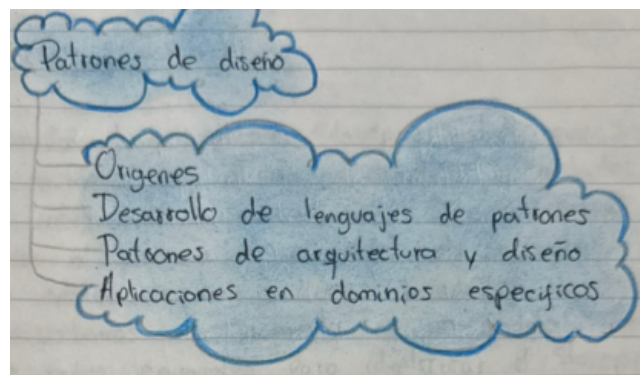 Patrones de diseño
Origenes
Desarrollo de lenguajes de patrones
Patrones de arquitectura y diseño
Aplicaciones en dominios especificos